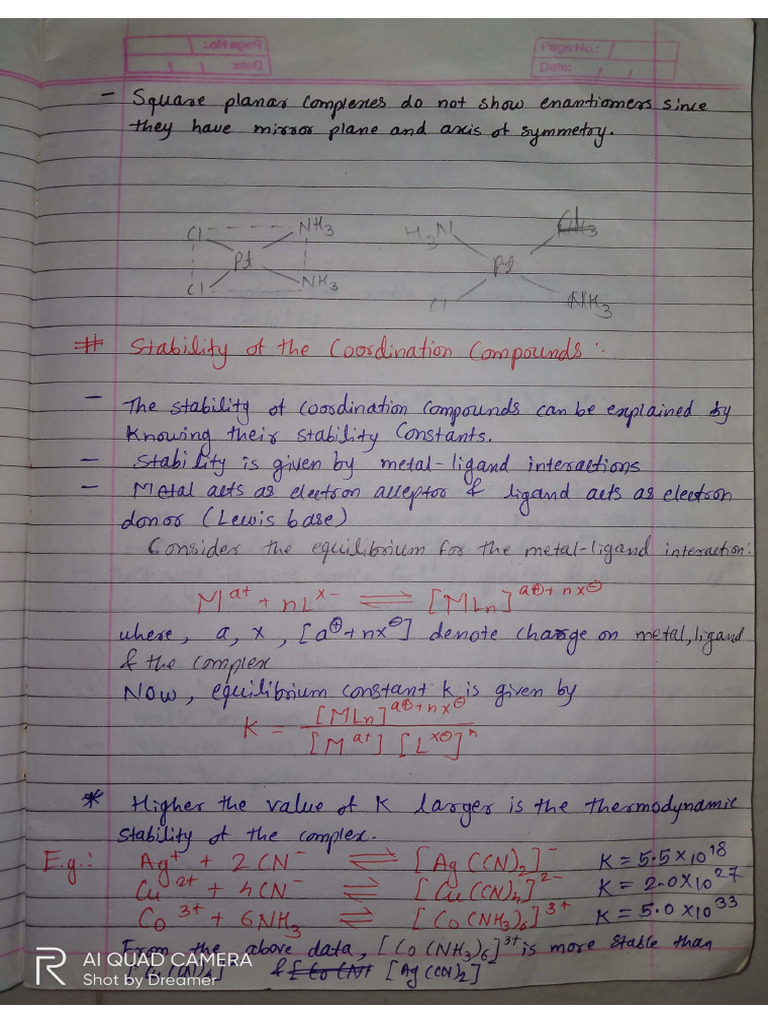 Page No.:
Date:
- Square planar complexes do not show enantiomers since
they have mirror plane and axis of symmetry.
Cl NH3 H3N Cl
Pt Pt
Cl NH3 Cl NH3
# Stability of the Coordination Compounds :-
- The stability of coordination compounds can be explained by
knowing their stability constants.
- Stability is given by metal-ligand interactions
- Metal acts as electron acceptor & ligand acts as electron
donor (Lewis base)
Consider the equilibrium for the metal-ligand interaction:
M^a+ + nL^x- ⇌ [MLn]^a⊕+nx⊖
where, a, x, [a⊕+nx⊖] denote charge on metal, ligand
& the complex
Now, equilibrium constant K is given by
K = [MLn]^a⊕+nx⊖
[M^a+] [L^x⊖]^n
* Higher the value of K larger is the thermodynamic
stability of the complex.
E.g.: Ag+ + 2CN- ⇌ [Ag(CN)2]- K = 5.5×10^18
Cu2+ + 4CN- ⇌ [Cu(CN)4]2- K = 2.0×10^27
Co3+ + 6NH3 ⇌ [Co(NH3)6]3+ K = 5.0×10^33
From the above data, [Co(NH3)6]3+ is more stable than
& [Ag(CN)2]
AI QUAD CAMERA
Shot by Dreamer